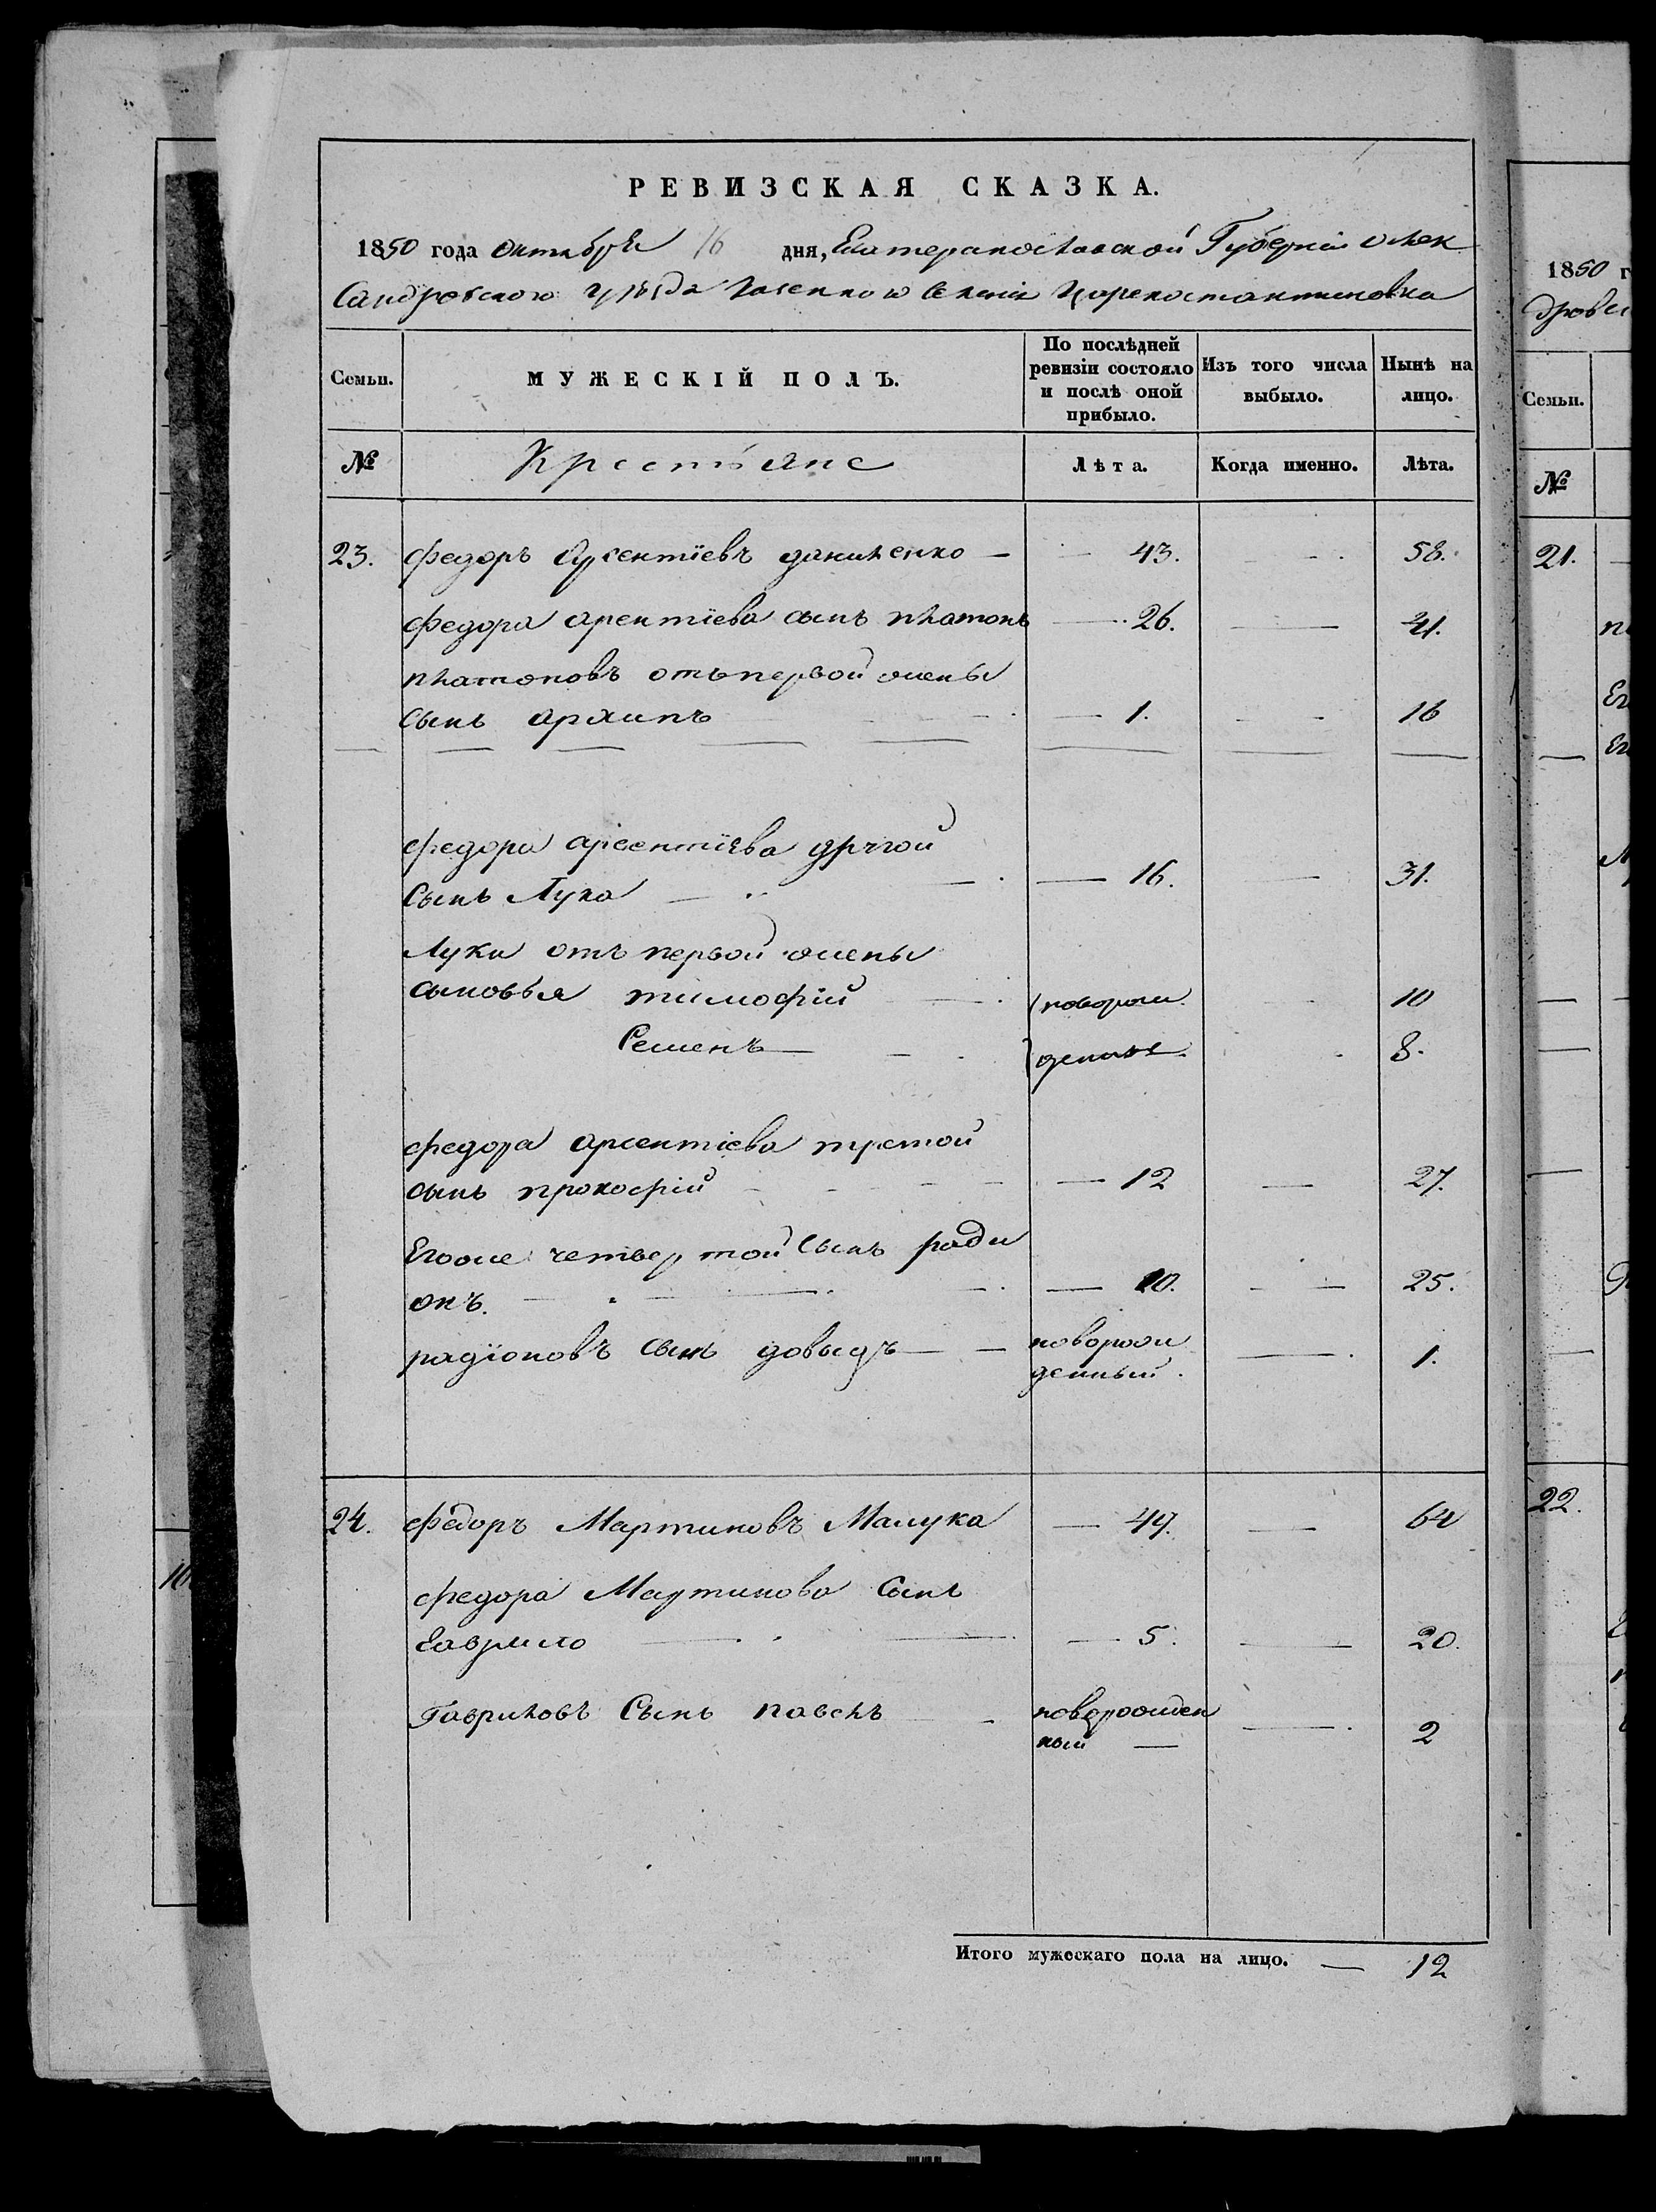 РЕВИЗСКАЯ СКАЗКА.
1850 года октября 16 дня, Екатеринославской Губерніи Алек
Сандровского уезда казенного Селенія Цареконстантиновка
Семьи. МУЖЕСКІЙ ПОЛЪ. По послѣдней ревизіи состояло и послѣ оной прибыло. Изъ того числа выбыло. Нынѣ на лицо.
№ Крестьяне Лѣта. Когда именно. Лѣта.
23. федоръ Арсентіевъ даниленко — 43. 58.
федора арентіева сынъ платонъ — 26. — 41.
платоновъ отъ первой жены
сынъ архипъ — 1. — 16
федора арсентіева другой
Сынъ Лука — 16. — 31.
Луки отъ первой жены
сыновья тимофій — новорож 10
Семенъ — денные 8.
федора арсентіева третой
сынъ прокофій — 12 — 27.
Егоже четвертой Сынъ ради
онъ. — 10. — 25.
радіоновъ сынъ довыдъ — новорож
денный. — 1.
24. федоръ Мартиновъ Малука — 49. — 64
федора Мартинова Сынъ
Гаврило — 5. — 20.
Гавриловъ Сынъ павелъ новорожден
ный — 2
Итого мужескаго пола на лицо. — 12
1850 г
дровс
Семьи.
№
21.
22.